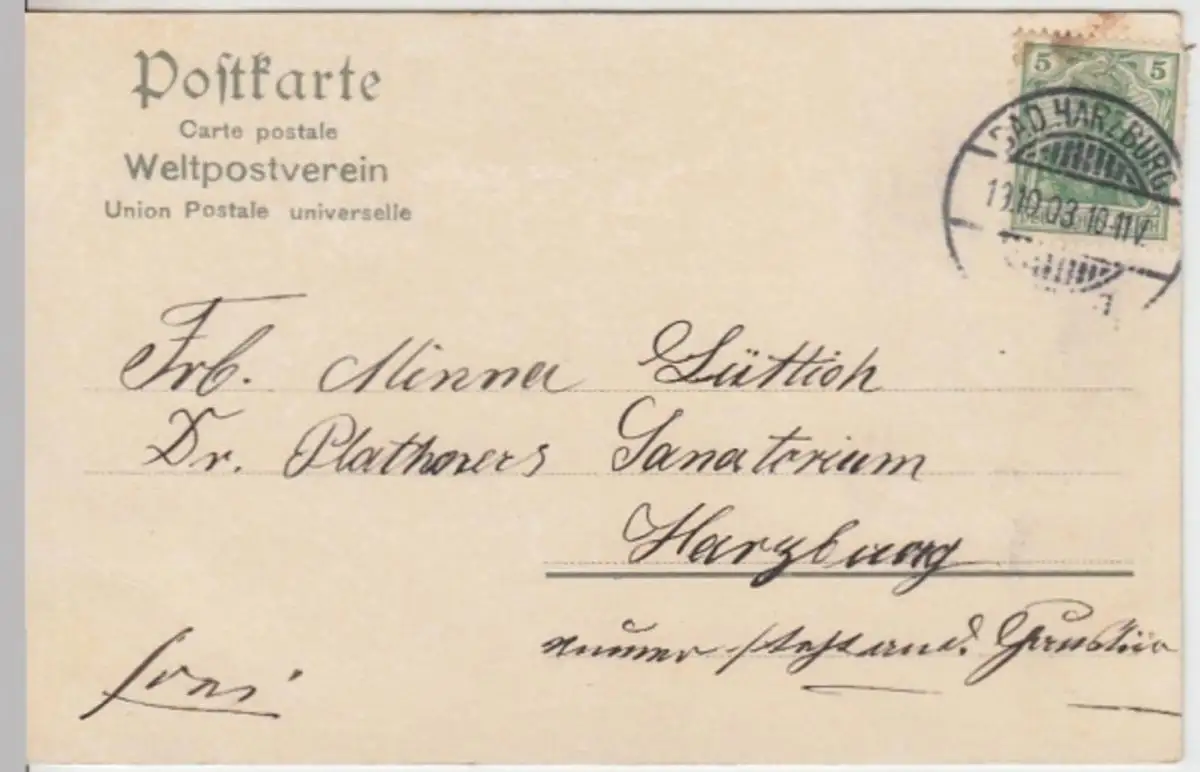 Postkarte
Carte postale
Weltpostverein
Union Postale universelle
5 5
BAD HARZBURG
19.10.03. 10-11V.
Frl. Minna Lüttich
Dr. Plathners Sanatorium
Harzburg
frei